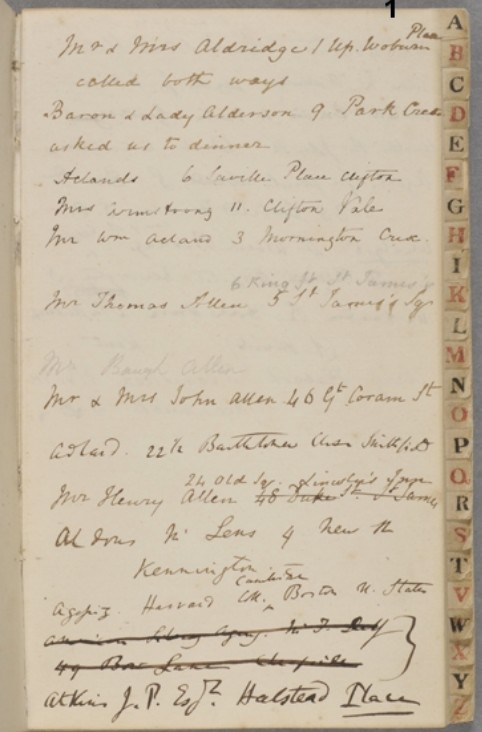 1
Mr & Mrs Aldridge 1 Up. Woburn Place
called both ways
Baron & Lady Alderson 9 Park Cresc
asked us to dinner
Aclands 6 Saville Place Clifton
Mrs Armstrong 11. Clifton Vale
Mr Wm Acland 3 Mornington Cresc.
6 King St St James's
Mr Thomas Allen 5 St James's Sq
Mr Baugh Allen
Mr & Mrs John Allen 46 Gt Coram St
Adlard. 22½ Bartholomew Close Smithfield
24 Old Sq. Lincoln's Inn
Mr Henry Allen 48 Duke St. St James
Lens 4 New
Kennington
Cambridge
Agassiz. Harvard Boston U. States
49 Bow Lane Cheapside
Atkins J. P. Esqre Halstead Place
A
B
C
D
E
F
G
H
I
K
L
M
N
O
P
Q
R
S
T
V
W
X
Y
Z